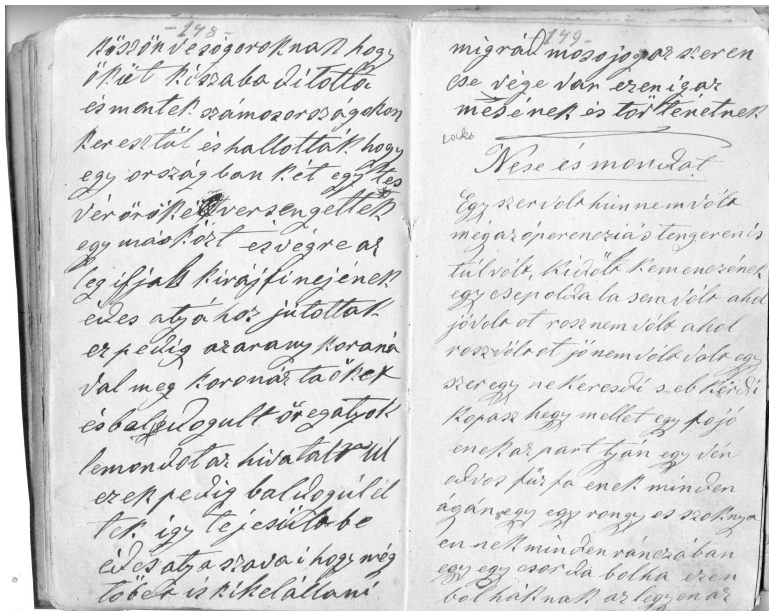 -148-
köszönve sógoroknak hogy
őköt kiszabaditotta
és mentek számos országokon
keresztül és hallották hogy
egy országban két egy tes
vér örökö versengettek
egy más közt és végre az
legifjabb kirájfi nejének
édes atyához jutottak
ez pedig az arany koraná
val meg koronázta őket
és baldogult öreg atyok
lemondot az hivataltul
ezek pedig baldogúl él
tek így tejesült be
édes atya szavai hogy még
töbet is kikel állani
-149-
migrád mosojog az szeren
cse vége van ezen igaz
mesének és történetnek
Nese és mondat
Egyszer volt hun nem vólt
még az óperencziás tengeren is
túl vólt, kidőlt kemenczének
egy csep oldala sem vólt ahol
jó vólt ot rosz nem vólt ahol
rosz vólt ot jó nem vólt volt egy
szer egy nekeresdi s eb kérdi
kopasz hegy mellet egy fojó
enek az part tyán egy vén
odvos fűz fa enek minden
ágán egy egy rongyos szoknya
en nek minden ránczában
egy egy csorda bolha ezen
bolháknak az legyen az